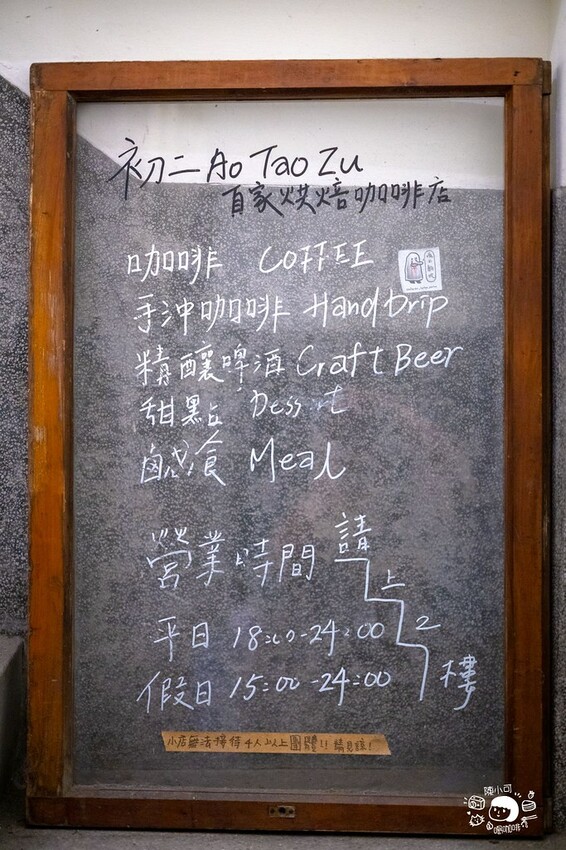 初二 Ao Tao Zu
自家烘焙咖啡店
咖啡 COFFEE
手沖咖啡 Hand Drip
精釀啤酒 Craft Beer
甜點 Dessert
鹹食 Meal
營業時間
請上2樓
平日 18:00-24:00
假日 15:00-24:00
小店無法接待4人以上團體!! 請見諒!
陳小可
喝咖啡